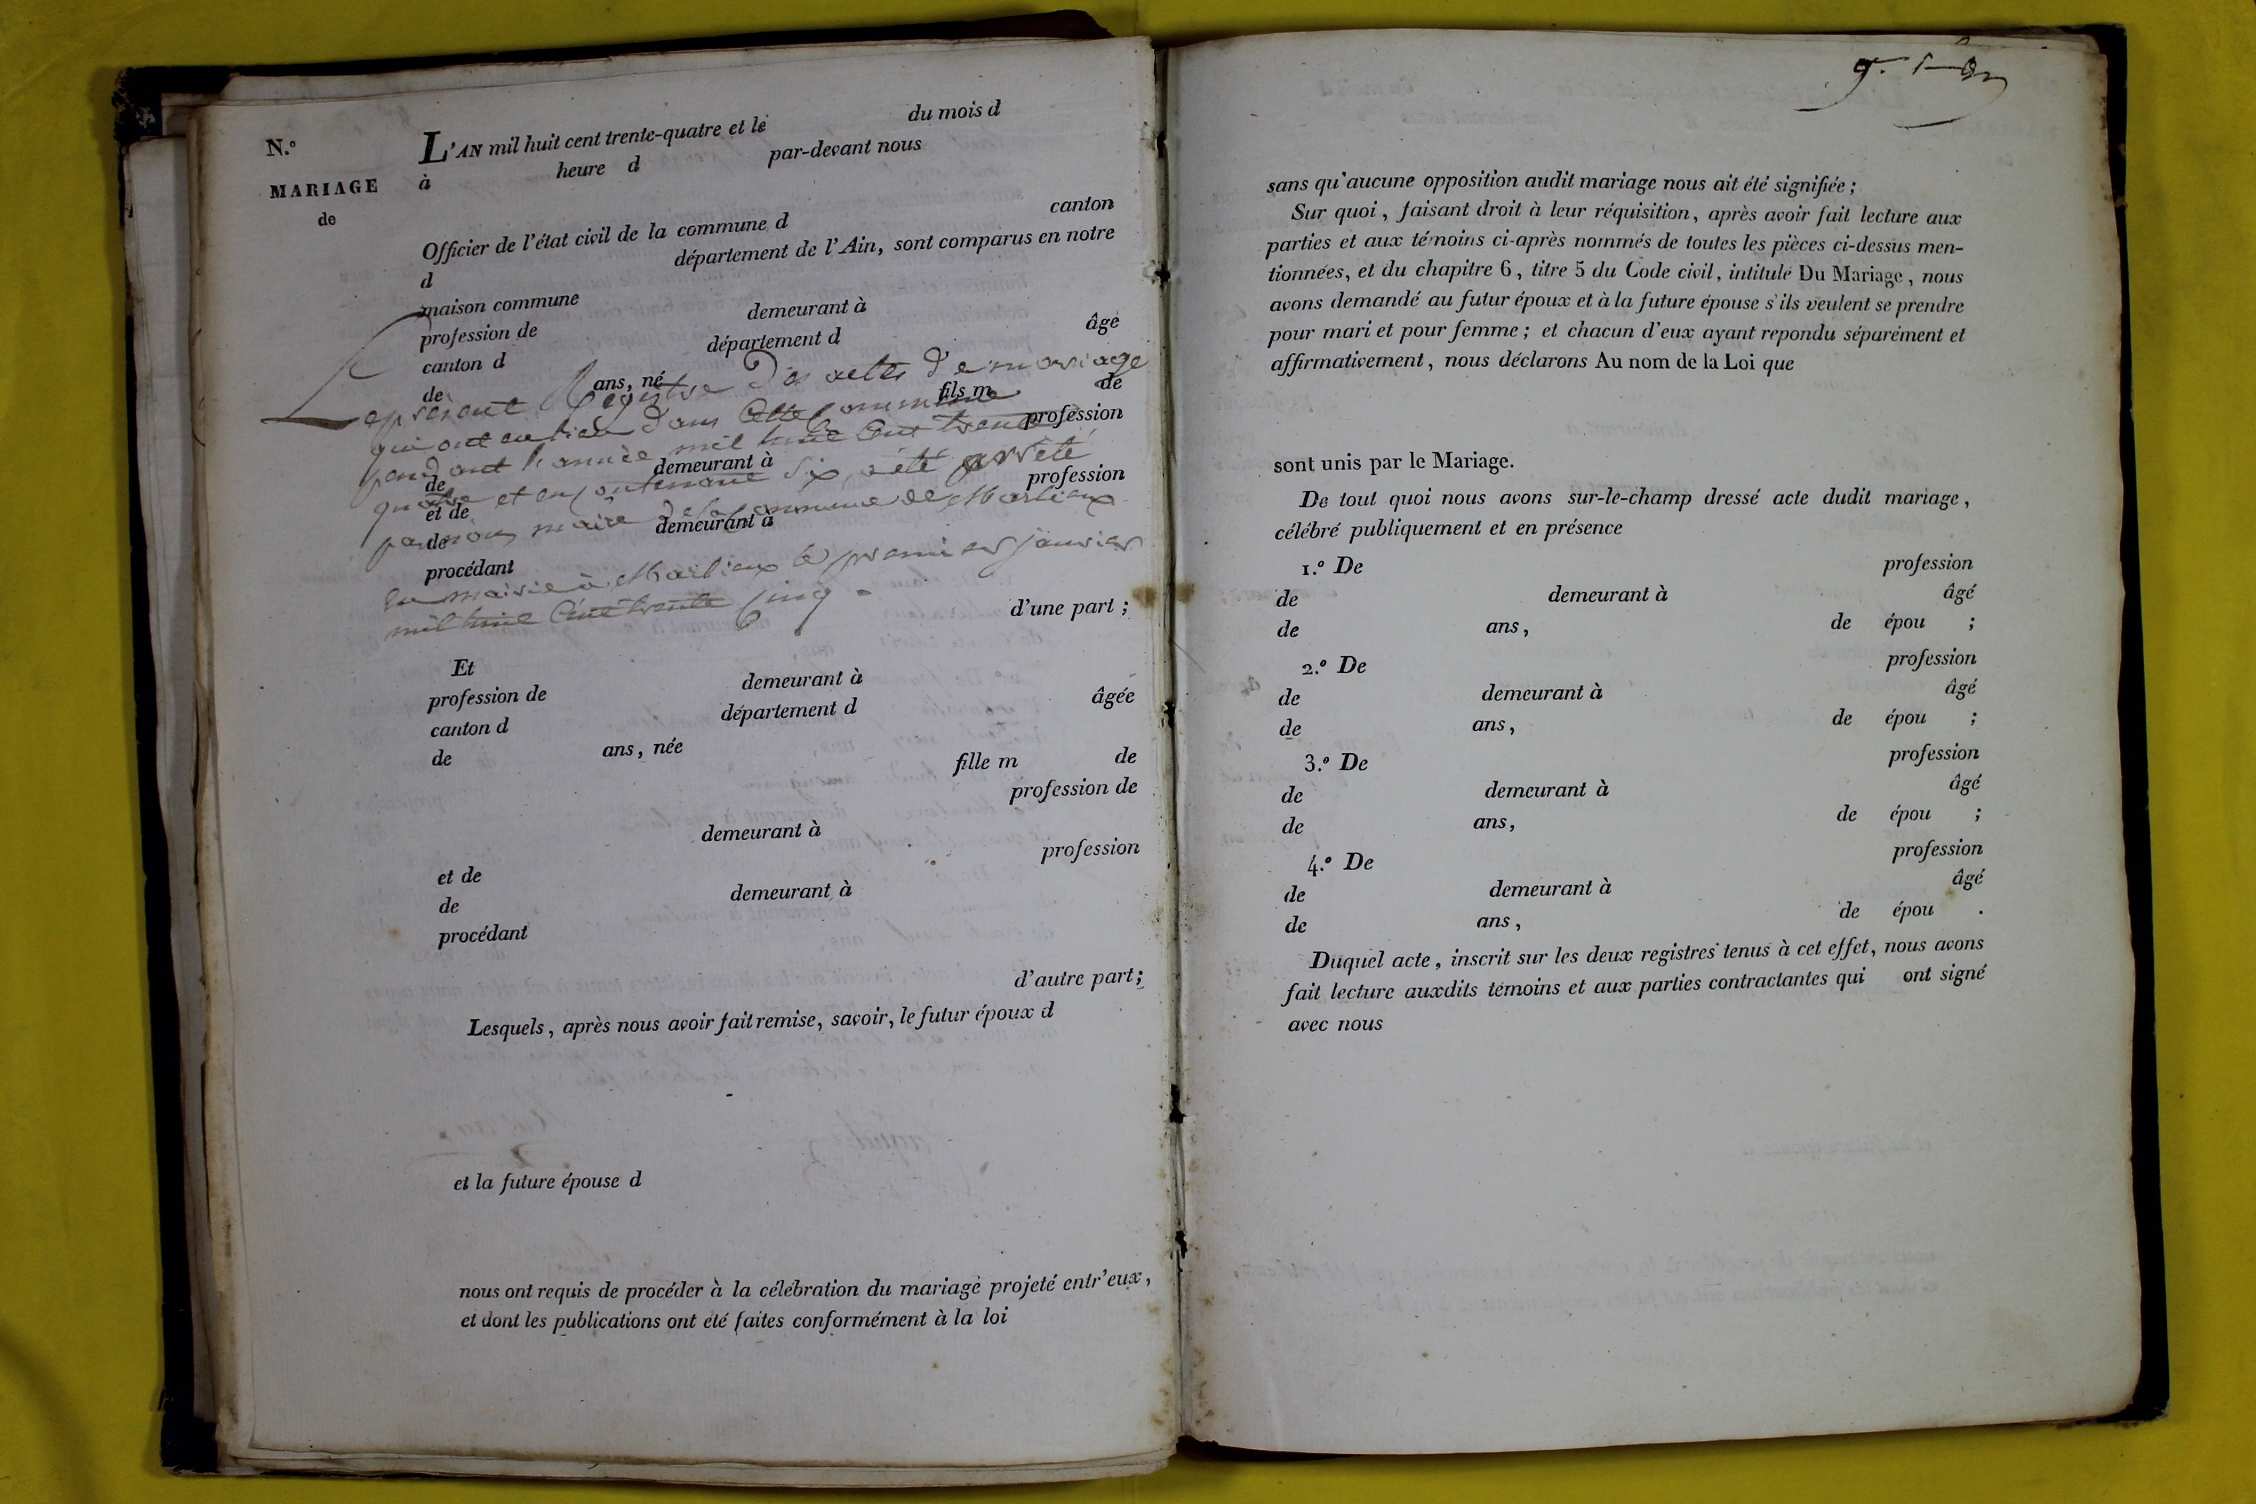 N.º
MARIAGE
de
L'AN mil huit cent trente-quatre et le du mois d
à heure d par-devant nous
Officier de l'état civil de la commune d canton
d département de l'Ain, sont comparus en notre
maison commune
profession de demeurant à
canton d département d âgé
de ans, né fils m de
profession
demeurant à
de profession
et de
de demeurant à
procédant
d'une part ;
Le présent Registre des actes de mariage
qui ont eu lieu dans Cette Commune
pendant l'année mil huit Cent trente
quatre et en contenant Six, a été arrêté
par nous maire de la Commune de Marlieux
En mairie à Marlieux le premier janvier
mil huit Cent trente Cinq
Et
profession de demeurant à
canton d département d âgée
de ans, née
fille m de
profession de
demeurant à
profession
et de
de demeurant à
procédant
d'autre part ;
Lesquels, après nous avoir fait remise, savoir, le futur époux d
et la future épouse d
nous ont requis de procéder à la célébration du mariage projeté entr'eux,
et dont les publications ont été faites conformément à la loi
sans qu'aucune opposition audit mariage nous ait été signifiée ;
Sur quoi, faisant droit à leur réquisition, après avoir fait lecture aux
parties et aux témoins ci-après nommés de toutes les pièces ci-dessus men-
tionnées, et du chapitre 6, titre 5 du Code civil, intitulé Du Mariage, nous
avons demandé au futur époux et à la future épouse s'ils veulent se prendre
pour mari et pour femme ; et chacun d'eux ayant repondu séparément et
affirmativement, nous déclarons Au nom de la Loi que
sont unis par le Mariage.
De tout quoi nous avons sur-le-champ dressé acte dudit mariage,
célébré publiquement et en présence
1.º De profession
de demeurant à âgé
de ans, de épou ;
2.º De profession
de demeurant à âgé
de ans, de épou ;
3.º De profession
de demeurant à âgé
de ans, de épou ;
4.º De profession
de demeurant à âgé
de ans, de épou .
Duquel acte, inscrit sur les deux registres tenus à cet effet, nous avons
fait lecture auxdits témoins et aux parties contractantes qui ont signé
avec nous